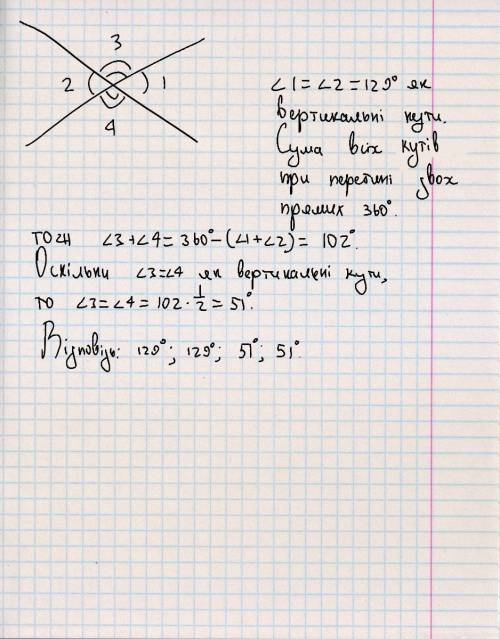 3
2 1
4
∠1 = ∠2 = 129° як
вертикальні кути.
Сума всіх кутів
при перетині двох
прямих 360°.
тоді ∠3+∠4 = 360° - (∠1+∠2) = 102°.
Оскільки ∠3=∠4 як вертикальні кути,
то ∠3=∠4 = 102 · 1/2 = 51°.
Відповідь: 129°; 129°; 51°; 51°.